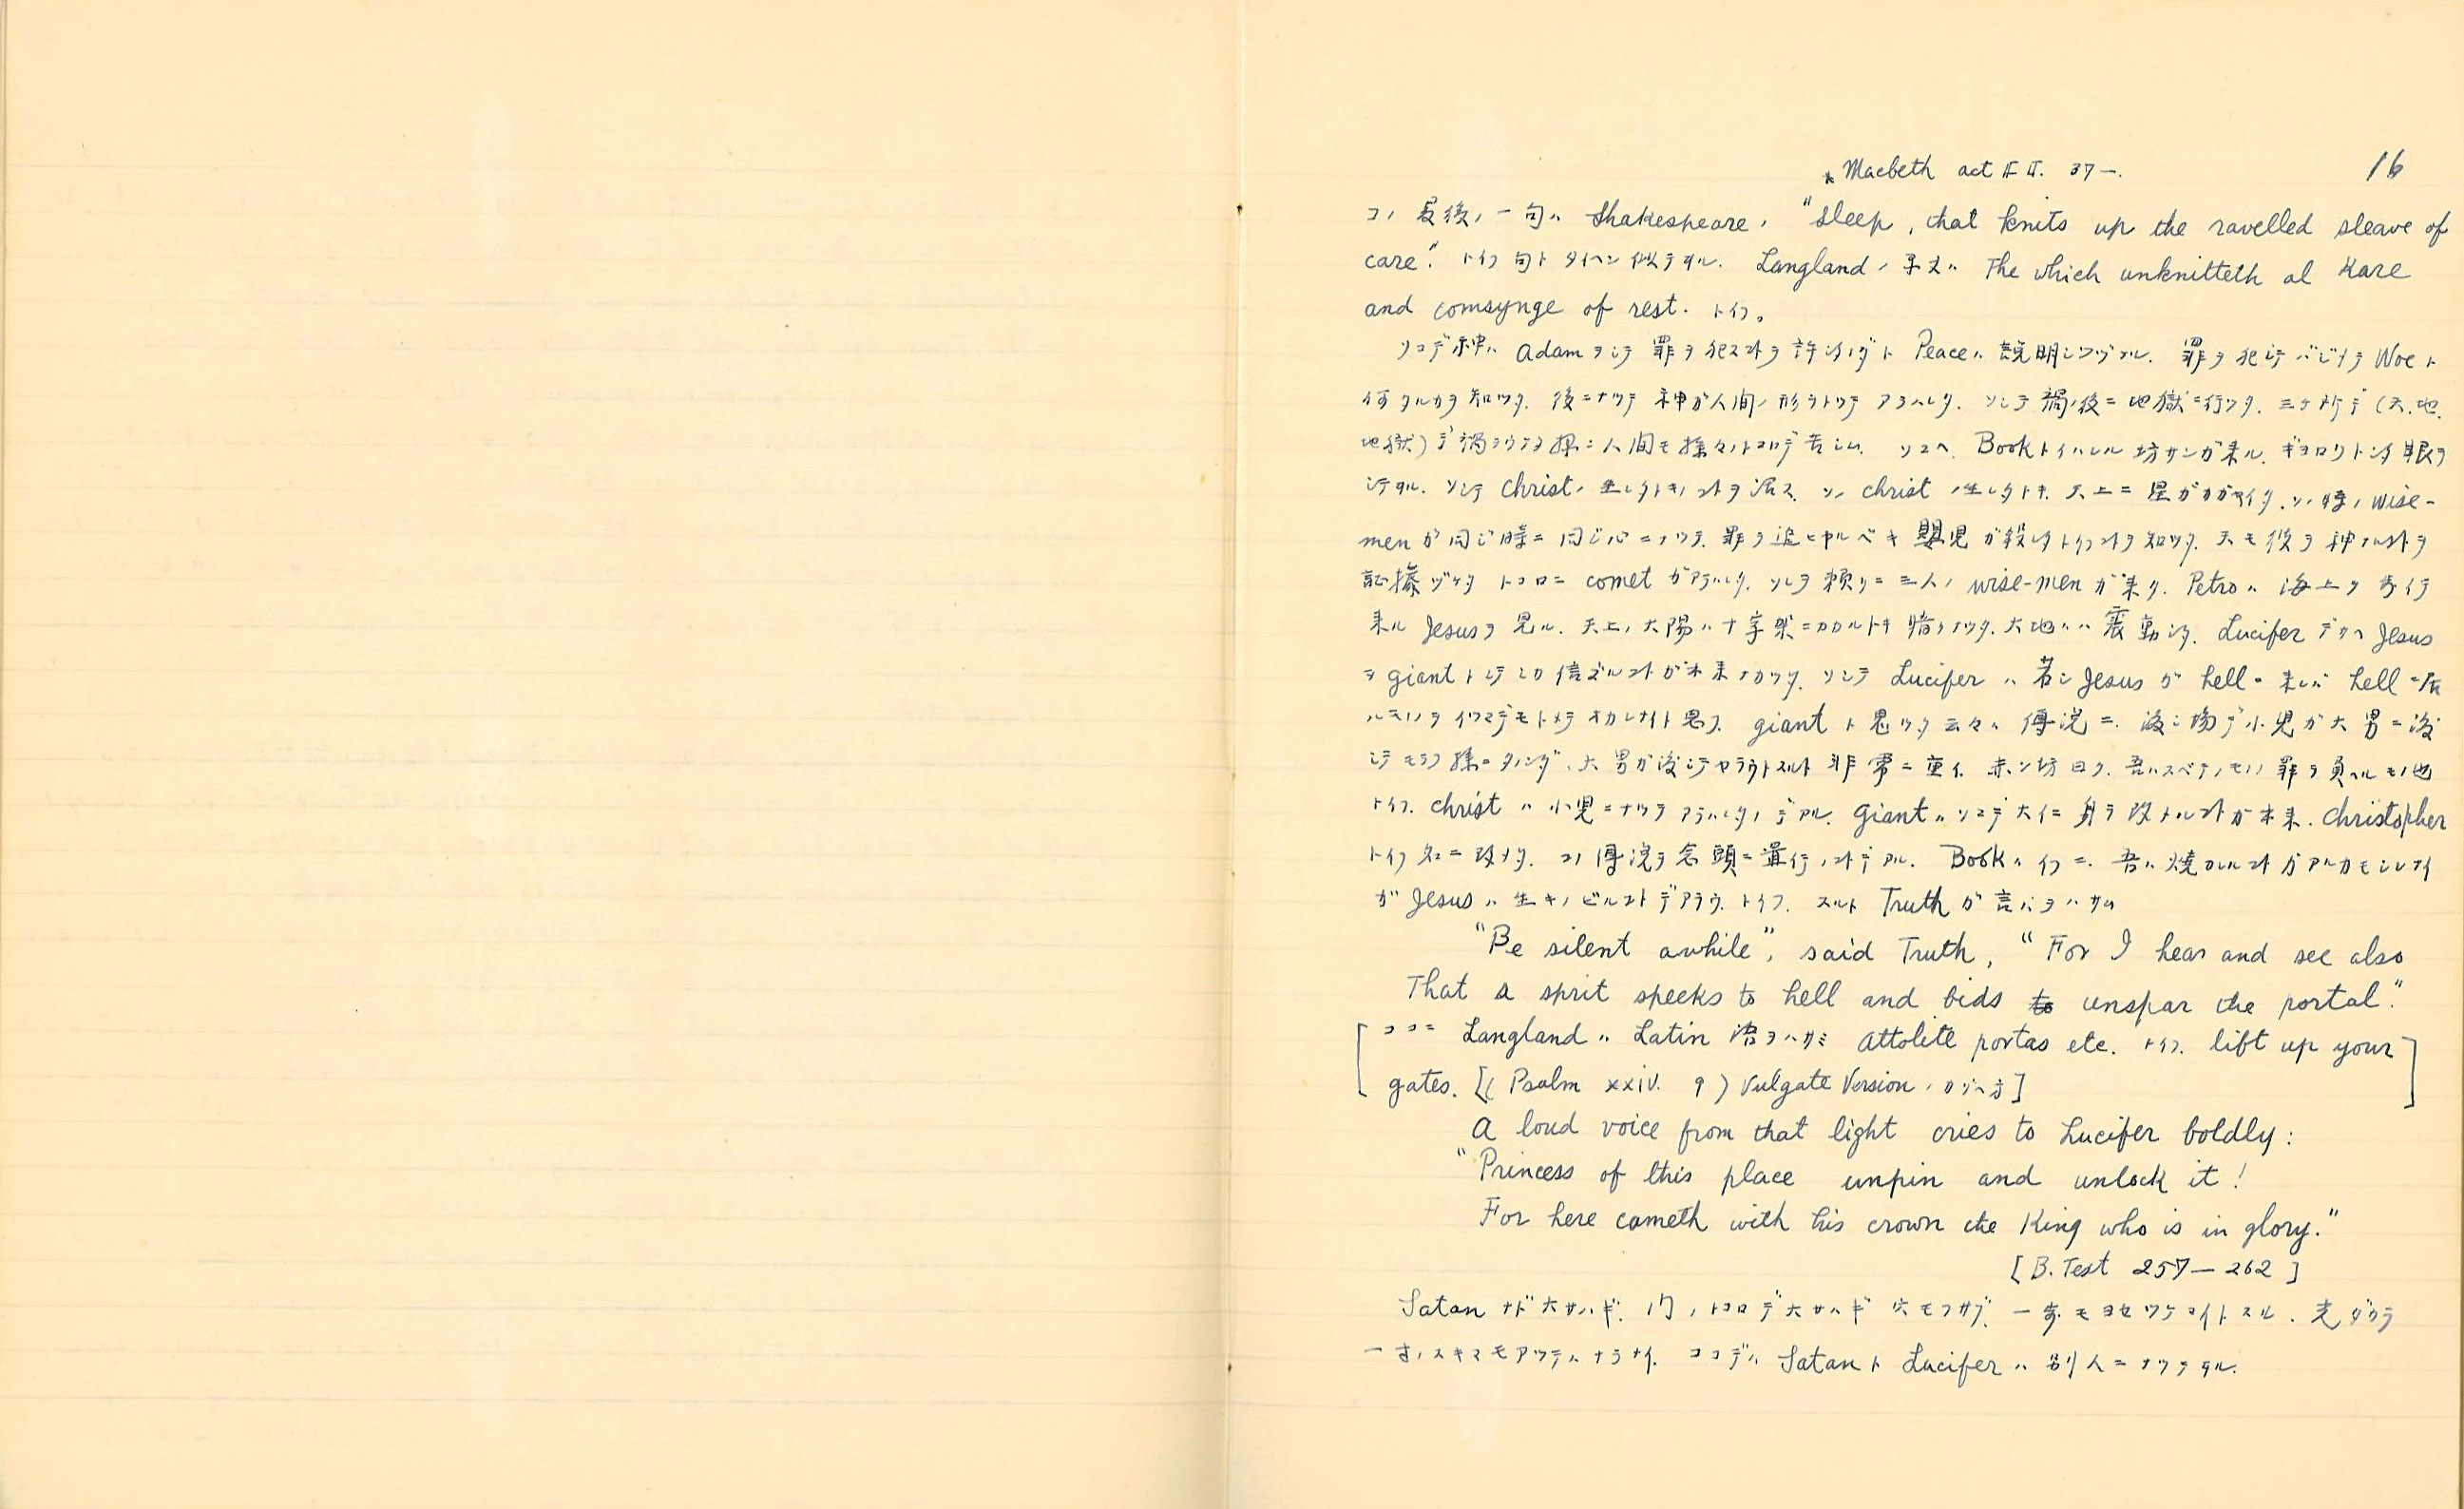 * Macbeth act II. II. 37—.
16
コノ最後ノ一句ハ Shakespeare ノ "Sleep, that knits up the ravelled sleave of
care." トイフ句トタイヘン似テヰル. Langland ノ ハ The which unknitteth al Kare
and comsynge of rest. トイフ。
ソコデ神ハ Adam ヲシテ罪ヲ犯スコトヲ許シタノダト Peace ハ説明シツヅケル. 罪ヲ犯シテ ハジメテ Woe ト
何タルカヲ知ツタ. 後ニナツテ神ガ人間ノ形ヲトツテアラハレタ. ソシテ禍ノ後ニ地獄ニ行ツタ. 三ヶ所デ(天.地.
地獄)デ禍ヲウケタ様ニ人間モ様々ノトコロデ苦シム. ソコヘ Book トイハレル坊サンガ来ル. ギヨロツトシタ眼ヲ
シテヰル. ソシテ Christ ノ生レタトキノコトヲ話ス. ソノ Christ ノ生レタトキ. 天上ニ星ガカガヤイタ. ソノ時ノ wise-
men ガ同ジ時ニ同ジ心ニナツテ. 罪ヲ追ヒヤルベキ嬰児ガ トイフコトヲ知ツタ. 天モ彼ヲ神ナルコトヲ
証拠ヅケタ トコロニ comet ガアラハレタ. ソレヲ頼リニ三人ノ wise-men ガ来タ. Petro ハ海上ヲ歩イテ
来ル Jesus ヲ見ル. 天上ノ太陽ハ十字架ニカカルトキ暗クナツタ. 大地ハ震動シタ. Lucifer デサヘ Jesus
ヲ giant トシテシカ信ズルコトガ出来ナカツタ. ソシテ Lucifer ハ若シ Jesus ガ hell ニ来レバ hell ニ居
ルモノヲイツマデモトメテオカレナイト思フ. giant ト思ツタ云々ハ傳説ニ. 渡シ場デ小児ガ大男ニ渡
シテモラフ様ニタノンダ、大男ガ渡シテヤラウトスルト非常ニ重イ. 赤ン坊曰ク. 吾ハスベテノモノノ罪ヲ負ヘルモノ也
トイフ. Christ ハ小児ニナツテアラハレタノデアル. Giant ハソコデ大イニ身ヲ改メルコトガ出来. Christopher
トイフ名ニ改メタ. コノ傳説ヲ念頭ニ置イテノコトデアル. Book ハイフニ. 吾ハ焼カレルコトガアルカモシレナイ
ガ Jesus ハ生キノビルコトデアラウ. トイフ. スルト Truth ガ言バヲハサム
"Be silent awhile", said Truth, "For I hear and see also
That a sprit speeks to hell and bids to unspar the portal."
[ココニ Langland ハ Latin 語ヲハサミ Attolite portas etc. トイフ. lift up your
gates. [(Psalm xxiv. 9) Vulgate Version ノカゾヘ方]]
A loud voice from that light cries to Lucifer boldly:
"Princess of this place unpin and unlock it!
For here cometh with his crown the King who is in glory."
[B. Text 257—262]
Satan ナド大サハギ. 門ノトコロデ大サハギ 穴モフサグ. 一歩モヨセツケマイトスル. 光ダツテ
一寸ノスキマモアツテハナラナイ. ココデハ Satan ト Lucifer ハ別人ニナツテヰル.